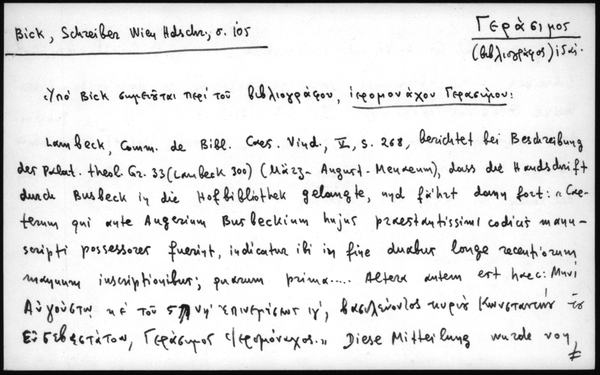 Bick, Schreiber Wien Hdschr., σ. 105
Γεράσιμος
(βιβλιογράφος) ιδαί.
Ὑπό Bick σημειῦται περί τοῦ βιβλιογράφου, ἱερομονάχου Γερασίμου:
Lambeck, Comm. de Bibl. Caes. Vind., V, S. 268, berichtet bei Beschreibung
der Palat. theol. Gr. 33 (Lambeck 300) (März - August - Menaeum), dass die Handschrift
durch Busbeck in die Hofbibliothek gelangte, und fährt dann fort: "Cae-
terum qui ante Augerium Busbeckium hujus praestantissimi codicis manu-
scripti possessores fuerint, indicatur ibi in fine duabus longe recentiorum
manuum inscriptionibus; quarum prima..... Altera autem est haec: Μηνί
Αὐγούστῳ κέ τοῦ ἐπινεμίσεως ιγ', βασιλεύοντος κυρίῦ Κωνσταντίν
Εὐσεβεστάτου, Γεράσιμος ἱερομόναχος." Diese Mitteilung wurde von